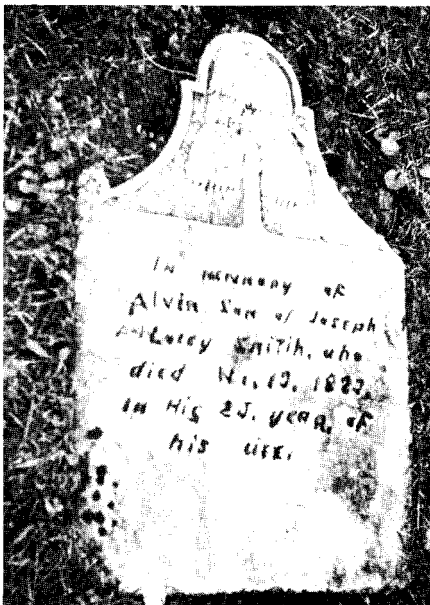 In memory of
Alvin, Son of Joseph
& Lucy Smith, who
died
In His 25. year, of
his life.